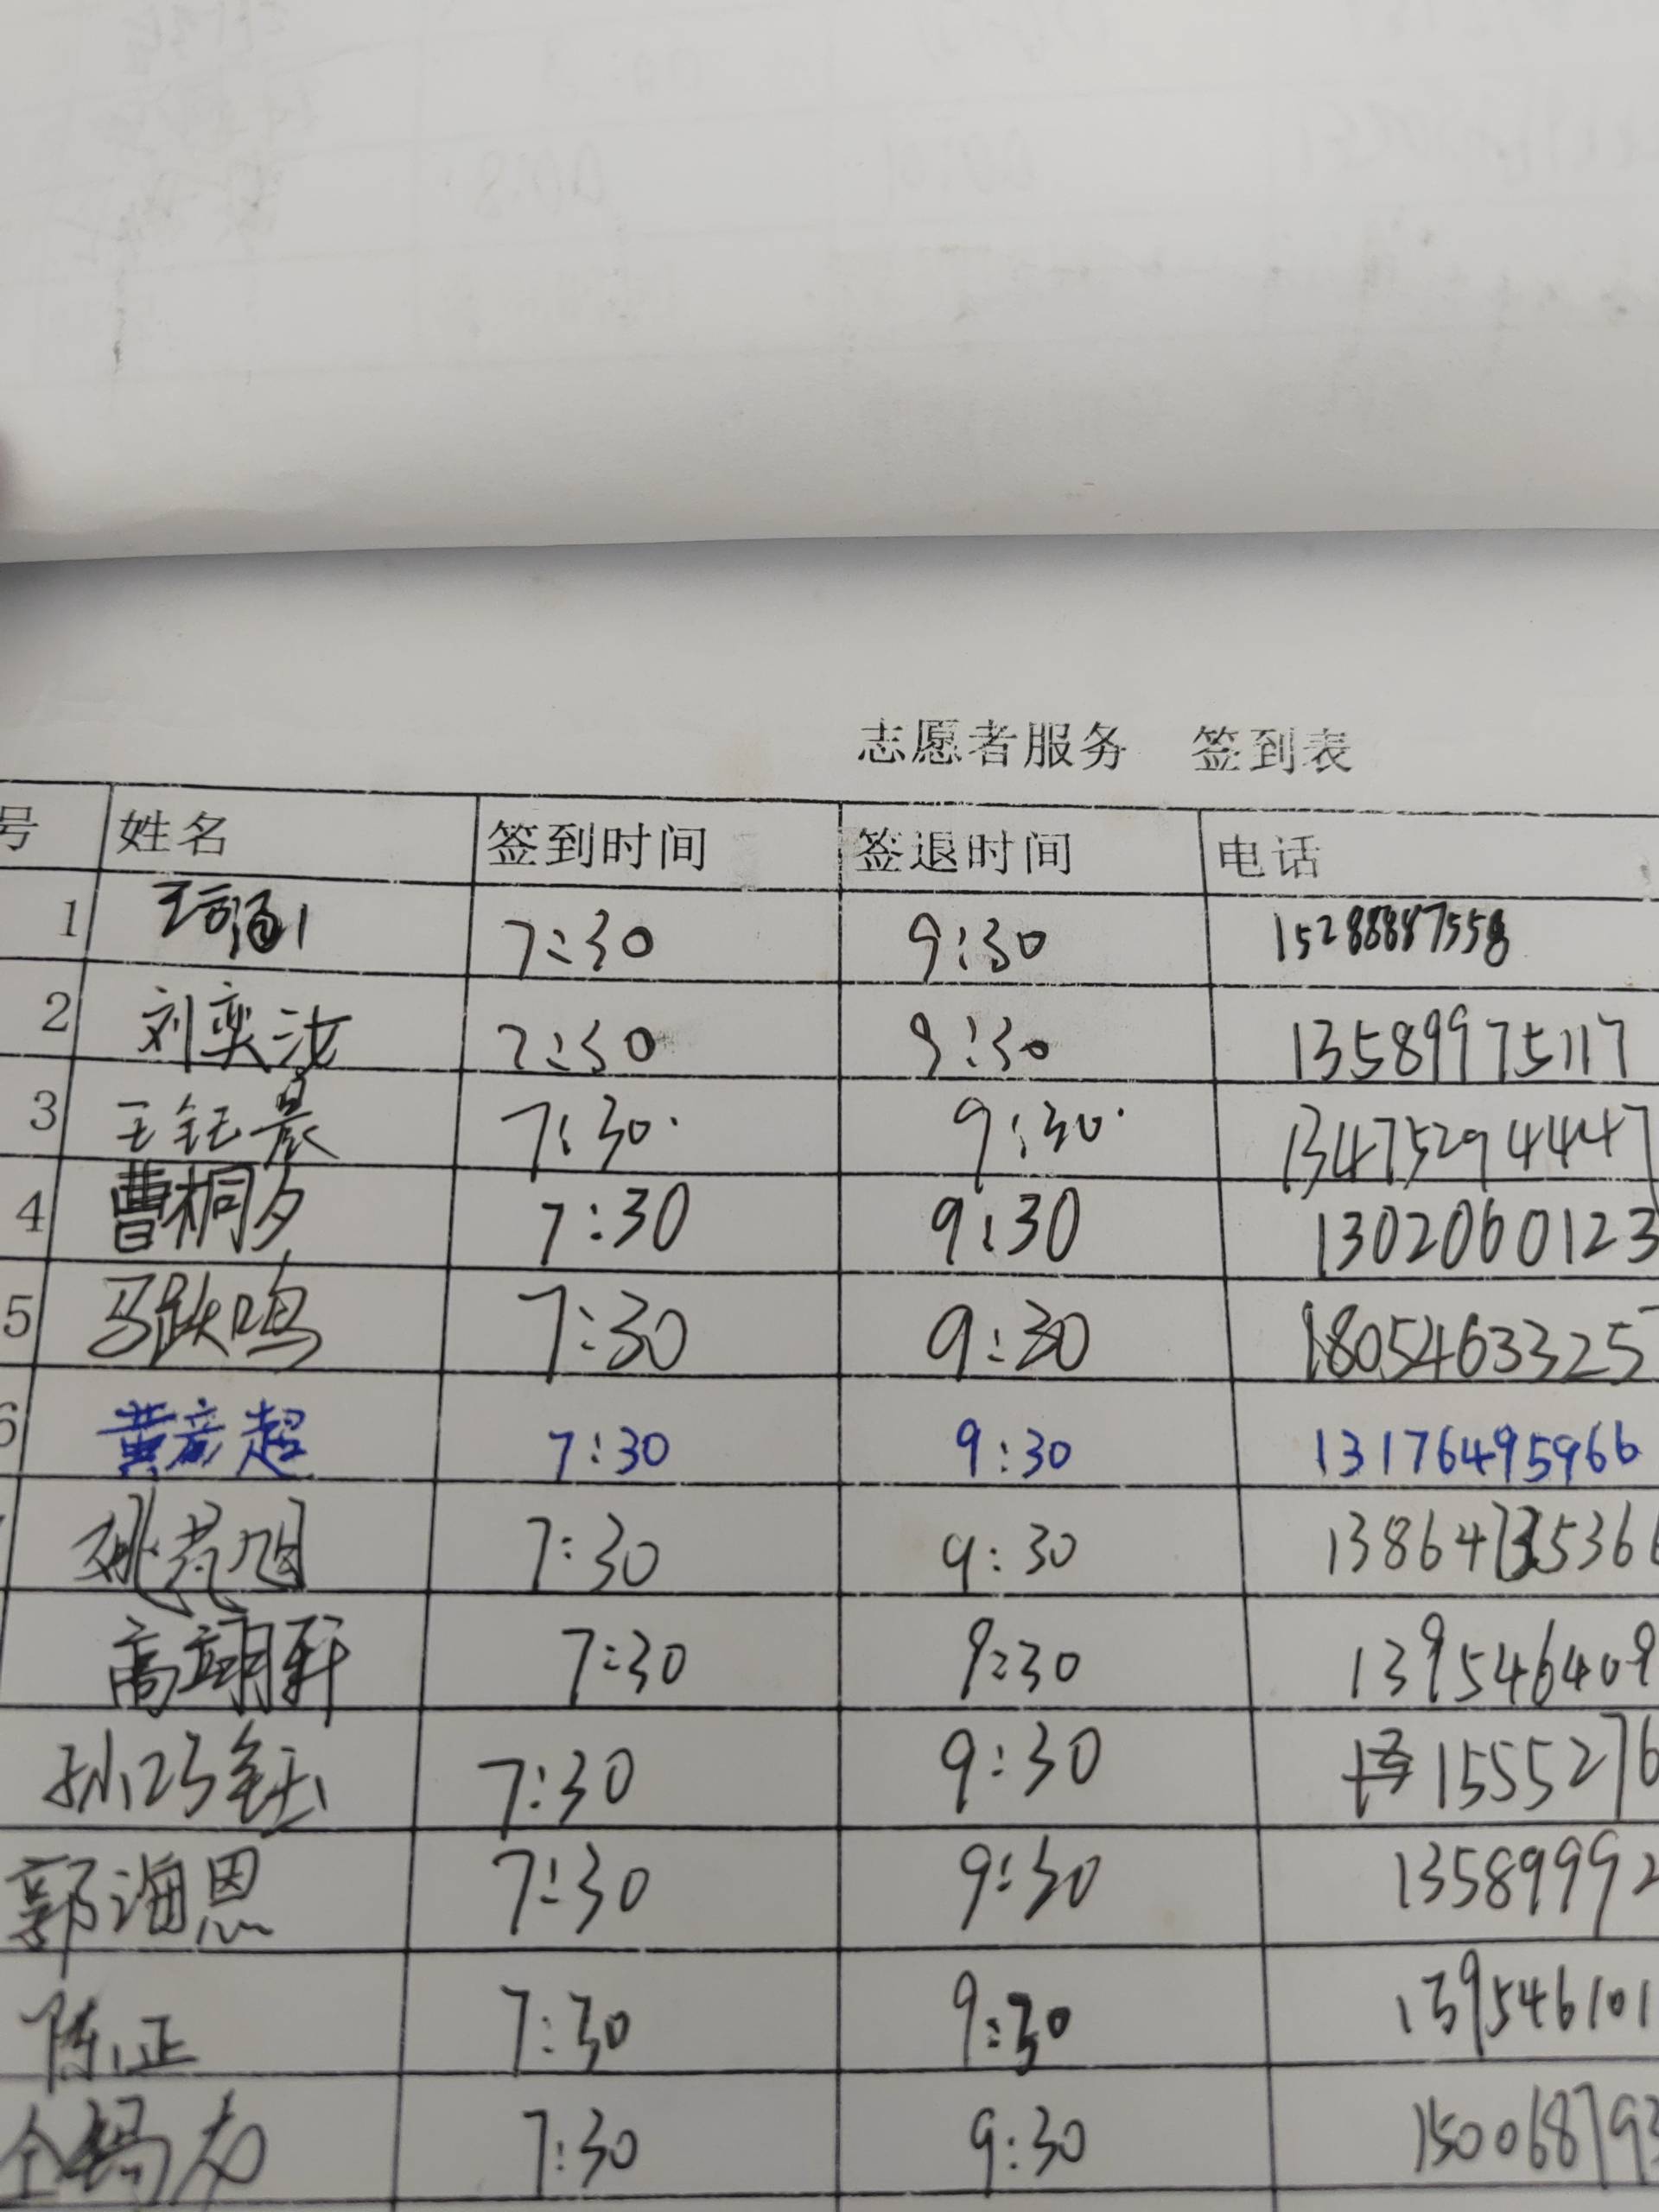 志愿者服务 签到表
号 姓名 签到时间 签退时间 电话
1 7:30 9:30 15288887558
2 刘奕汝 7:30 9:30 13589975117
3 王钰晨 7:30 9:30 13475294447
4 曹桐夕 7:30 9:30 1302060123
5 马跃鸣 7:30 9:30 1805463325
6 黄彦超 7:30 9:30 13176495966
7:30 9:30
高翊轩 7:30 9:30 139546409
孙巧钰 7:30 9:30 1555276
郭海恩 7:30 9:30 13589992
陈正 7:30 9:30 139546101
7:30 9:30 150068793